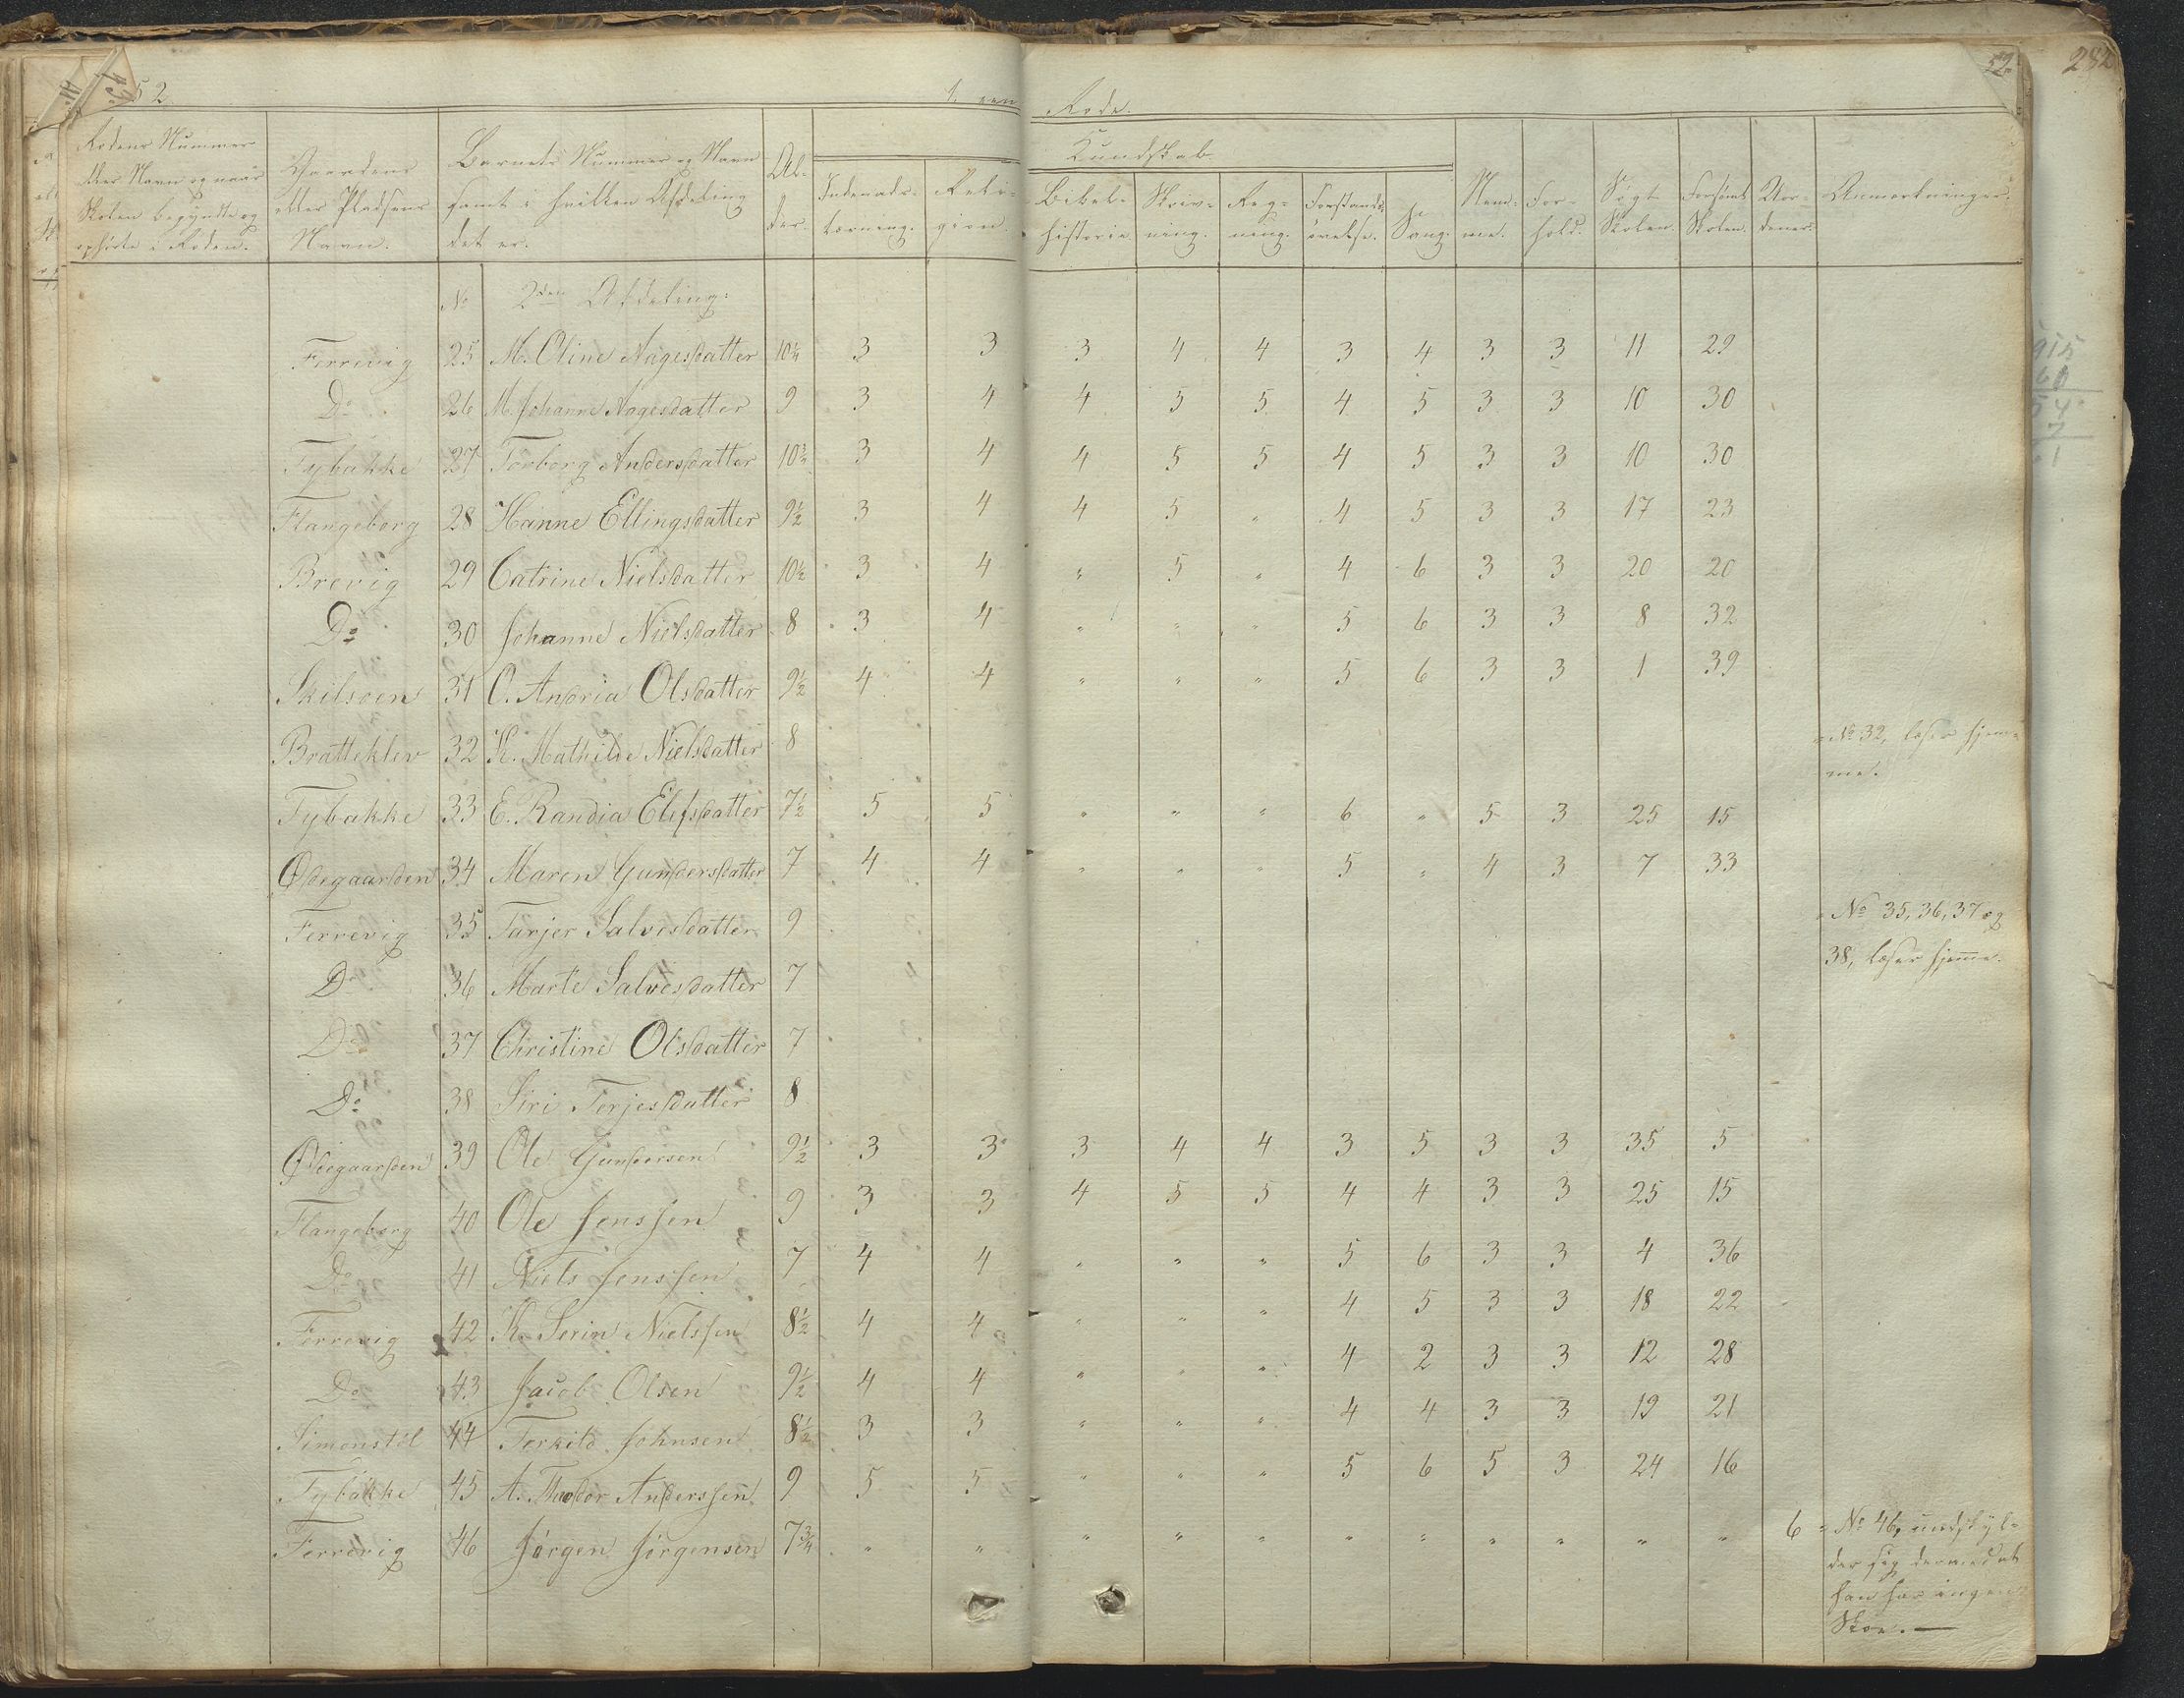 52 1. een Rode. 52. 282
Rodens Nummer eller Navn og naar Skolen begyndte og ophørte i Roden. Gaardens eller Pladsens Navn. Barnets Nummer og Navn samt i hvilken Afdeling det er. Alder. Indenadslæsning. Religion. Kundskab Bibelhistorie. Skrivning. Regning. Forstandsøvelse. Sang. Nemme. Forhold. Søgt Skolen. Forsømt Skolen. Anmærkninger.
No 2den Afdeling:
Ferrevig 25 M. Oline Nagesdatter 10¼ 3 3 3 4 4 3 4 3 3 11 29
Do 26 M. Johanne Nagesdatter 9 3 4 4 5 5 4 5 3 3 10 30
Tybakke 27 Torborg Andersdatter 10¾ 3 4 4 5 5 4 5 3 3 10 30
Flangeborg 28 Hanne Ellingsdatter 9½ 3 4 4 5 " 4 5 3 3 17 23
Brevig 29 Catrine Nielsdatter 10½ 3 4 " 5 " 4 6 3 3 20 20
Do 30 Johanne Nielsdatter 8 3 4 " " " 5 6 3 3 8 32
Skilsoen 31 O. Andria Olsdatter 9½ 4 4 " " " 5 6 3 3 1 39
Bratteklev 32 K. Mathilde Nielsdatter 8 = No 32, læser hjem=
me.
Tybakke 33 E. Randia Elefsdatter 7½ 5 5 " " " 6 " 5 3 25 15
Ødegaarden 34 Maren Gundersdatter 7 4 4 " " " 5 " 4 3 7 33
Ferrevig 35 Tarjer Salvesdatter 9 = No 35, 36, 37 og
38, læser hjemme.
Do 36 Marte Salvesdatter 7
Do 37 Christine Olsdatter 7
Do 38 Siri Terjesdatter 8
Ødegaarden 39 Ole Gundersen 9½ 3 3 3 4 4 3 5 3 3 35 5
Flangeborg 40 Ole Jenssen 9 3 3 4 5 5 4 4 3 3 25 15
Do 41 Niels Jenssen 7 4 4 " " " 5 6 3 3 4 36
Ferrevig 42 K. Serin Nielssen 8½ 4 4 " " " 4 5 3 3 18 22
Do 43 Jacob Olsen 9½ 4 4 " " " 4 2 3 3 12 28
Simonstöl 44 Terkild Johnsen 8½ 3 3 " " " 4 4 3 3 19 21
Tybakke 45 A. Theodor Anderssen 9 5 5 " " " 5 6 5 3 24 16
Ferrevig 46 Jørgen Jørgensen 7¾ " " " " " " " " " " " 6 = No 46, undskyl=
der sig dermed at
han har ingen
Skoe. —